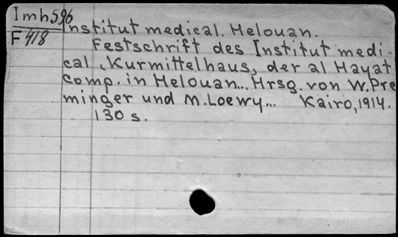 Imh596
F418
Institut medical. Helouan.
Festschrift des Institut medi-
cal „Kurmittelhaus„ der al Hayat
Comp. in Helouan... Hrsg. von W.Pre
minger und M.Loewy... Kairo, 1914.
130 s.